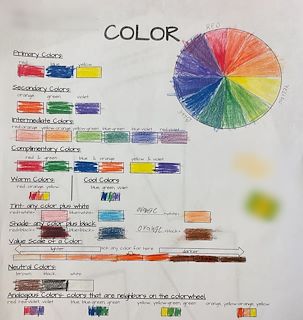 COLOR
RED
Primary Colors:
red blue yellow
Secondary Colors:
orange green violet
Intermediate Colors:
red-orange yellow-orange yellow-green blue-green blue-violet red-violet
Complimentary Colors:
red & green blue & orange yellow & violet
Warm Colors Cool Colors
red, orange, yellow blue, green, violet
Tint- any color plus white
red+white= blue+white= orange +white=
Shade- any color plus black
red+black= blue+black= orange +black=
Value Scale of a Color:
lighter pick any color for here darker
Neutral Colors:
brown black white
Analogous Colors- colors that are neighbors on the colorwheel
red, red-violet, violet blue, blue-green, green yellow, yellow-green, green orange, yellow-orange, yellow